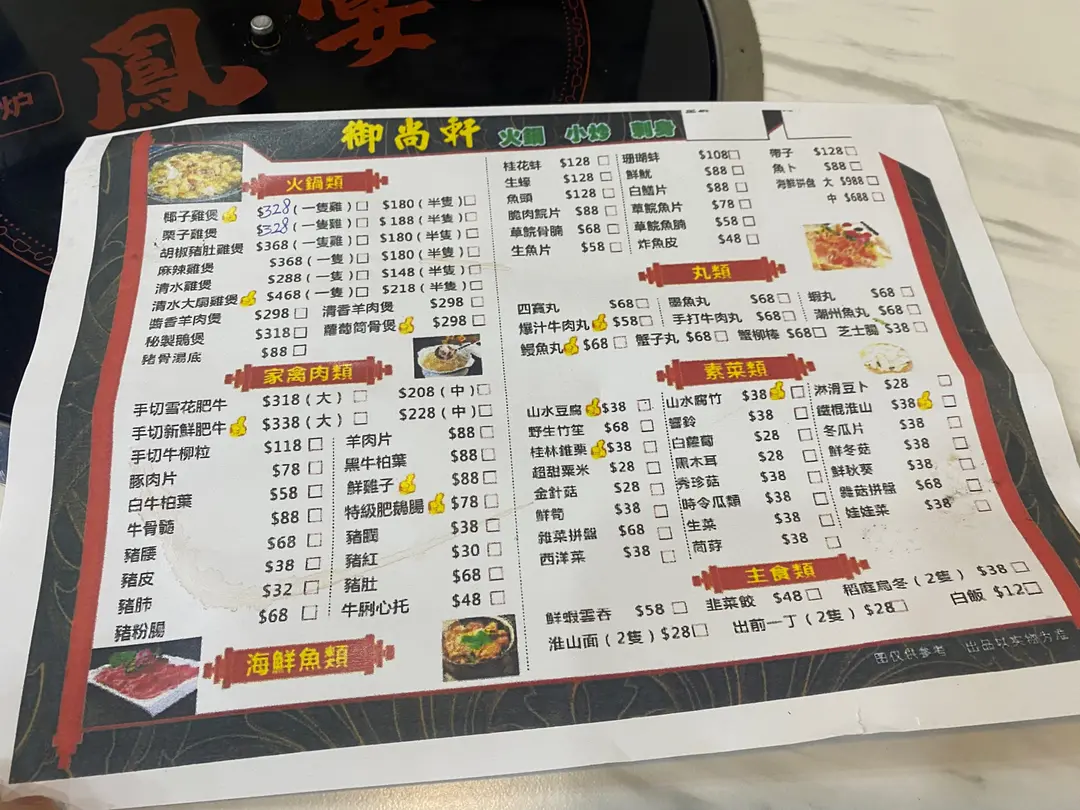 鳳
宴
炉
御尚軒 火鍋 小炒 刺身
火鍋類
椰子雞煲 $328 (一隻雞) $180 (半隻)
栗子雞煲 $328 (一隻雞) $188 (半隻)
胡椒豬肚雞煲 $368 (一隻雞) $180 (半隻)
麻辣雞煲 $368 (一隻) $180 (半隻)
清水雞煲 $288 (一隻) $148 (半隻)
清水大閹雞煲 $468 (一隻) $218 (半隻)
醬香羊肉煲 $298 清香羊肉煲 $298
秘製鵝煲 $318 蘿蔔筒骨煲 $298
豬骨湯底 $88
家禽肉類
手切雪花肥牛 $318 (大) $208 (中)
手切新鮮肥牛 $338 (大) $228 (中)
手切牛柳粒 $118
豚肉片 $78
白牛柏葉 $58
牛骨髓 $88
豬腰 $68
豬皮 $38
豬肺 $32
豬粉腸 $68
羊肉片 $88
黑牛柏葉 $88
鮮雞子 $88
特級肥鵝腸 $78
豬膶 $38
豬紅 $30
豬肚 $68
牛脷心托 $48
海鮮魚類
桂花蚌 $128
生蠔 $128
魚頭 $128
脆肉鯇片 $88
草鯇骨腩 $68
生魚片 $58
珊瑚蚌 $108
鮮魷 $88
白鱔片 $88
草鯇魚片 $78
草鯇魚腩 $58
炸魚皮 $48
帶子 $128
魚卜 $88
海鮮拼盘 大 $988
中 $688
丸類
四寶丸 $68 墨魚丸 $68 蝦丸 $68
爆汁牛肉丸 $58 手打牛肉丸 $68 潮州魚丸 $68
鰻魚丸 $68 蟹子丸 $68 蟹柳棒 $68 芝士腸 $38
素菜類
山水豆腐 $38
野生竹笙 $68
桂林錐栗 $38
超甜粟米 $28
金針菇 $28
鮮筍 $38
雜菜拼盤 $68
西洋菜 $38
山水腐竹 $38
響鈴 $38
白蘿蔔 $28
黑木耳 $28
秀珍菇 $38
時令瓜類 $38
生菜 $38
茼蒿 $38
淋滑豆卜 $28
鐵棍淮山 $38
冬瓜片 $38
鮮冬菇 $38
鮮秋葵 $38
雜菇拼盤 $68
娃娃菜 $38
主食類
鮮蝦雲吞 $58 韭菜餃 $48 稻庭烏冬 (2隻) $38
淮山面 (2隻) $28 出前一丁 (2隻) $28 白飯 $12
图仅供参考 出品以实物为准